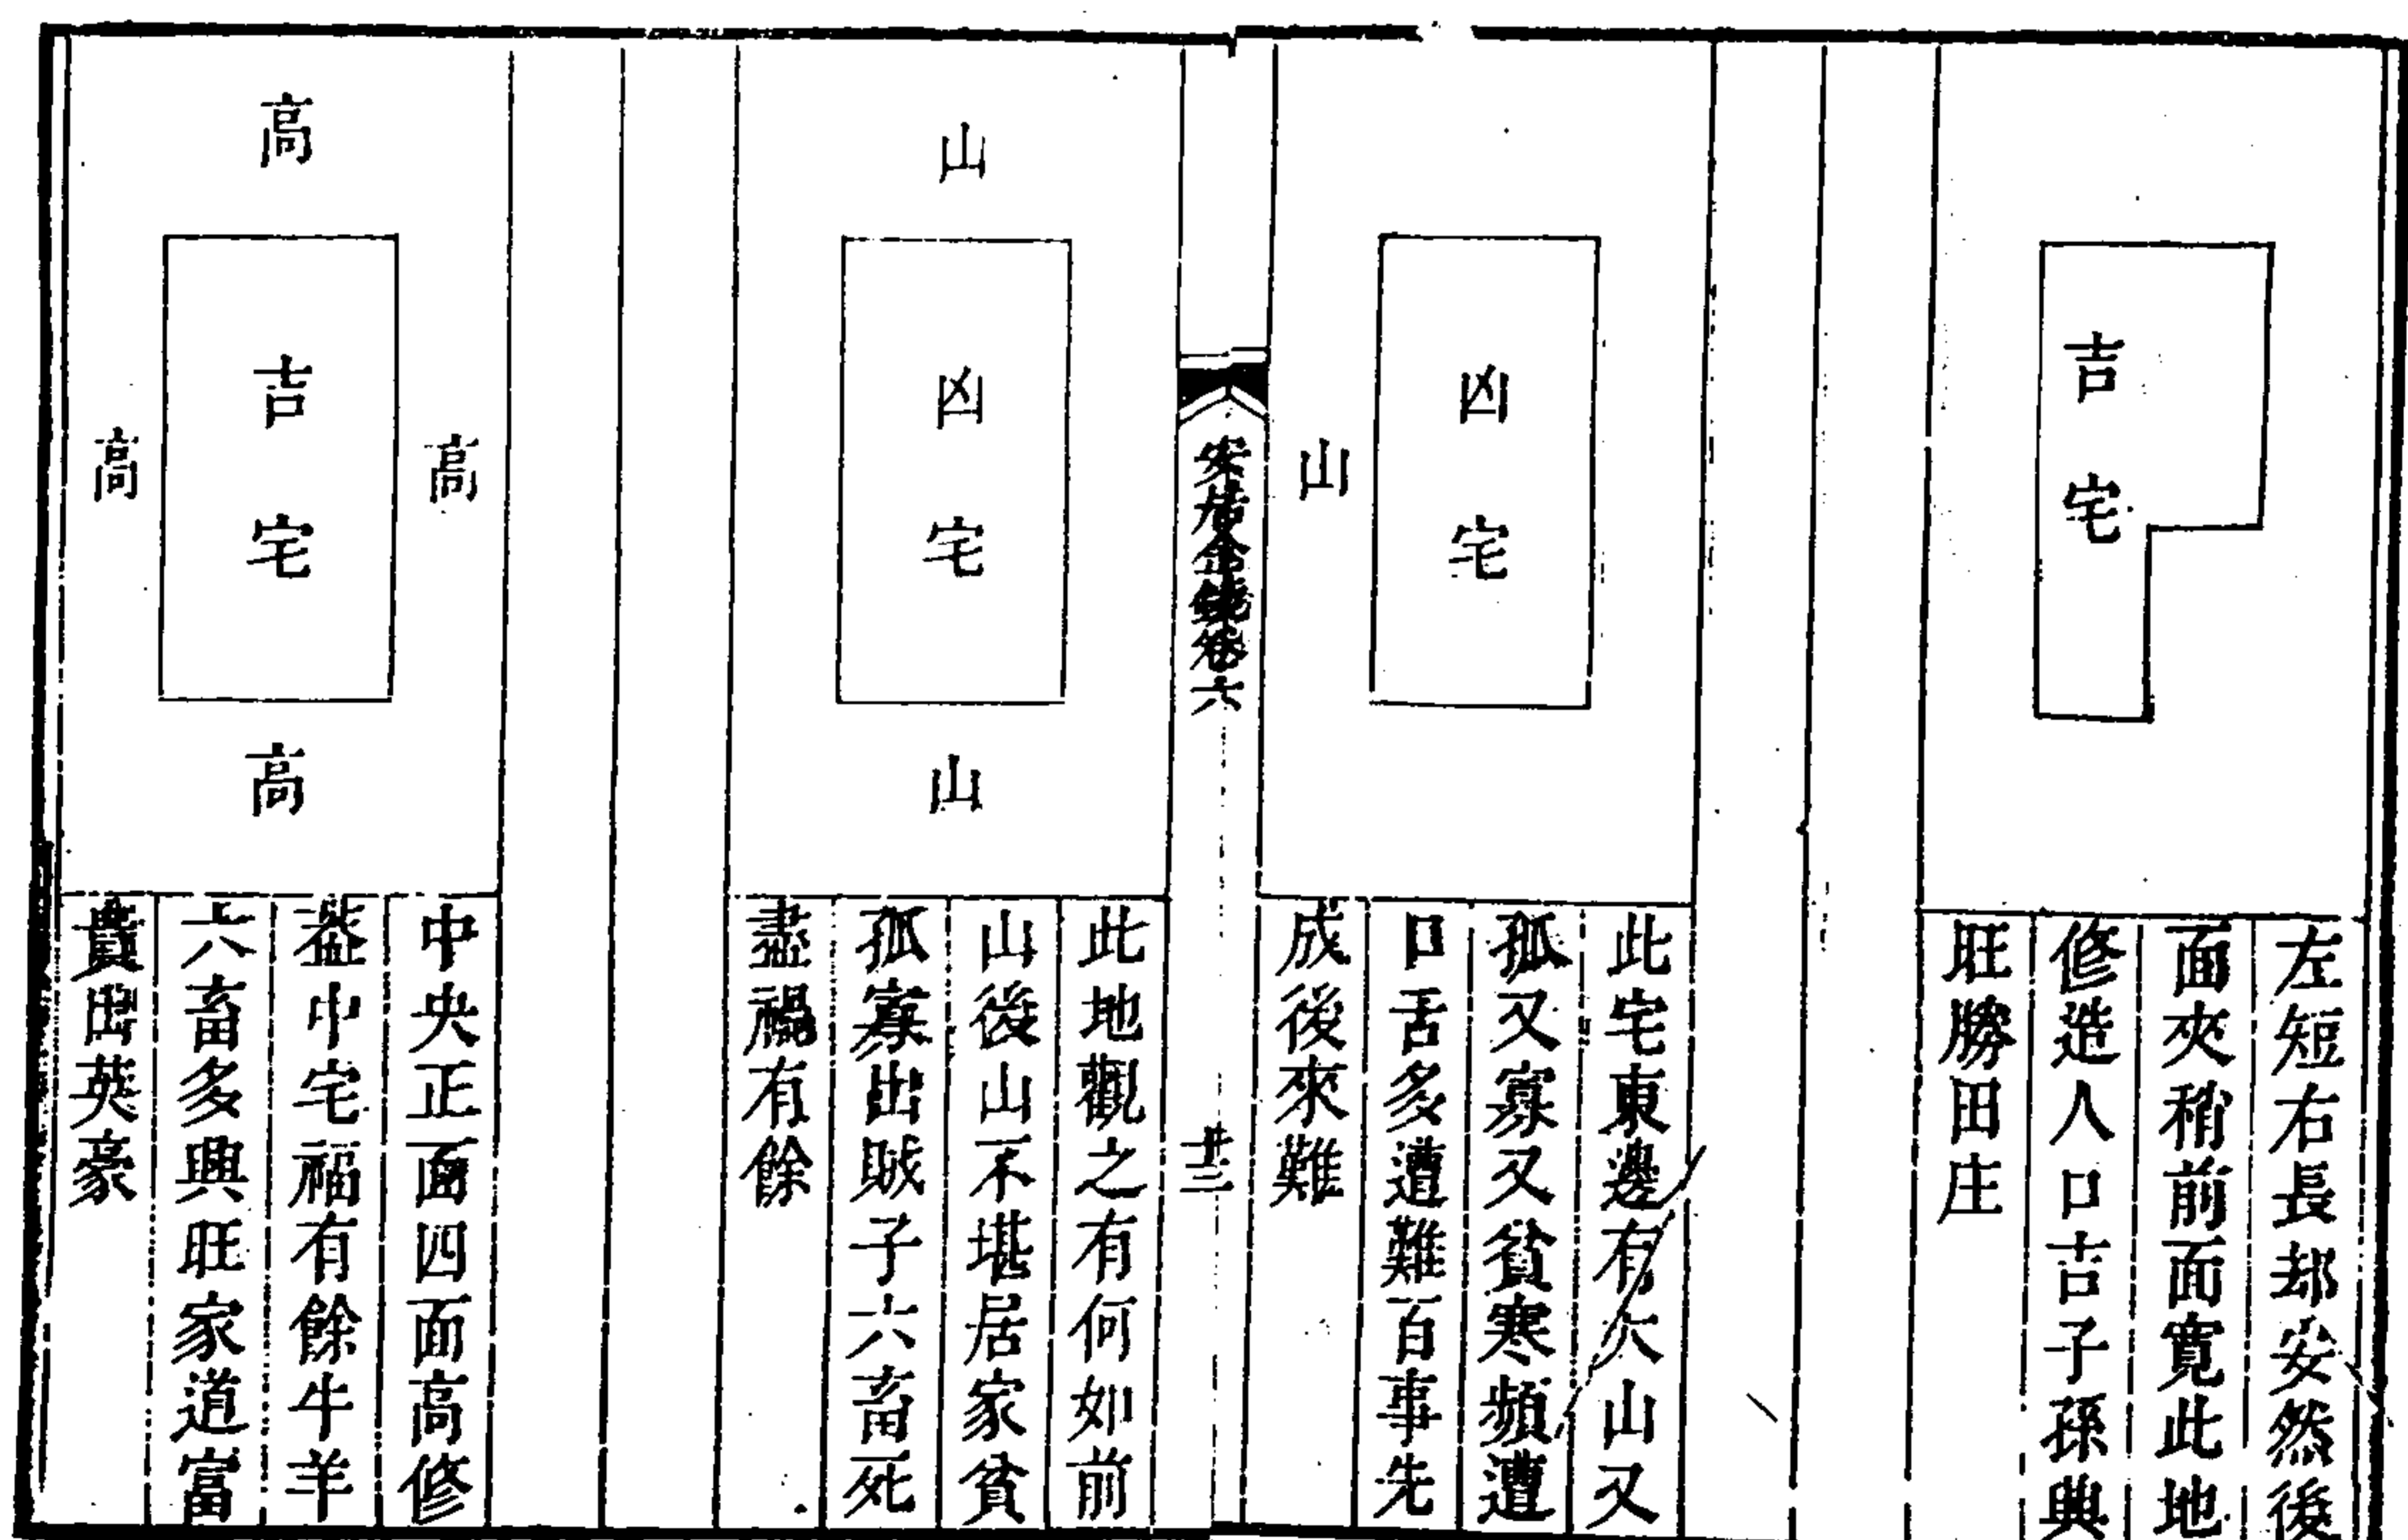 吉宅
左短右長却安然後
面夾稍前面寬此地
修造人口吉子孫興
旺勝田庄
凶宅
山
此宅東邊有大山又
孤又寡又貧寒頻遭
口舌多遭難百事先
成後來難
安居金鏡卷六
廿三
山
凶宅
山
此地觀之有何如前
山後山不堪居家貧
孤寡出賊子六畜死
盡禍有餘
高
高
吉宅
高
高
中央正面四面高修
蓋中宅福有餘牛羊
六畜多興旺家道富
貴出英豪